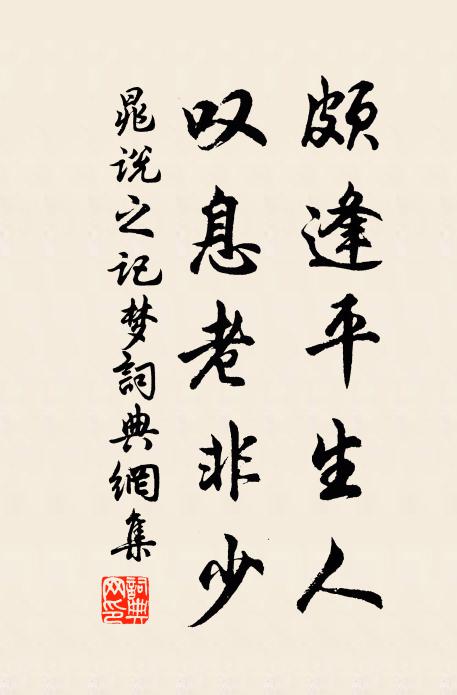 颇逢平生人
叹息老非少
晁说之记梦詞典網集
詞典网印